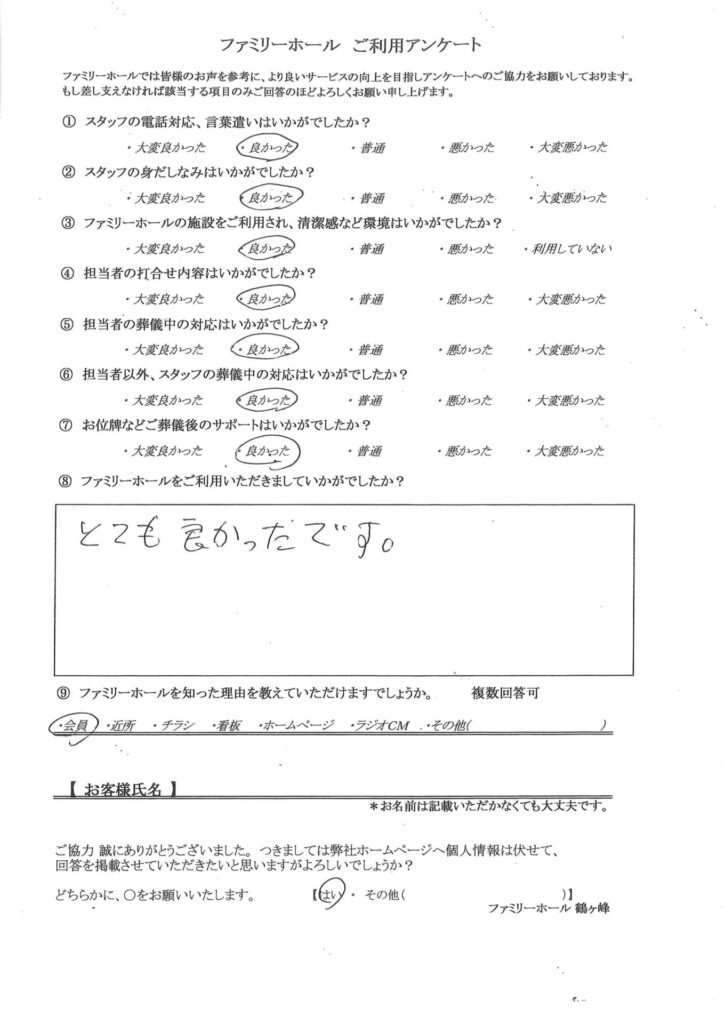 ファミリーホール ご利用アンケート
ファミリーホールでは皆様のお声を参考に、より良いサービスの向上を目指しアンケートへのご協力をお願いしております。
もし差し支えなければ該当する項目のみご回答のほどよろしくお願い申し上げます。
① スタッフの電話対応、言葉遣いはいかがでしたか？
・大変良かった ・良かった ・普通 ・悪かった ・大変悪かった
② スタッフの身だしなみはいかがでしたか？
・大変良かった ・良かった ・普通 ・悪かった ・大変悪かった
③ ファミリーホールの施設をご利用され、清潔感など環境はいかがでしたか？
・大変良かった ・良かった ・普通 ・悪かった ・利用していない
④ 担当者の打合せ内容はいかがでしたか？
・大変良かった ・良かった ・普通 ・悪かった ・大変悪かった
⑤ 担当者の葬儀中の対応はいかがでしたか？
・大変良かった ・良かった ・普通 ・悪かった ・大変悪かった
⑥ 担当者以外、スタッフの葬儀中の対応はいかがでしたか？
・大変良かった ・良かった ・普通 ・悪かった ・大変悪かった
⑦ お位牌などご葬儀後のサポートはいかがでしたか？
・大変良かった ・良かった ・普通 ・悪かった ・大変悪かった
⑧ ファミリーホールをご利用いただきましていかがでしたか？
とても良かったです。
⑨ ファミリーホールを知った理由を教えていただけますでしょうか。 複数回答可
・会員 ・近所 ・チラシ ・看板 ・ホームページ ・ラジオCM ・その他( )
【 お客様氏名 】
＊お名前は記載いただかなくても大丈夫です。
ご協力 誠にありがとうございました。つきましては弊社ホームページへ個人情報は伏せて、
回答を掲載させていただきたいと思いますがよろしいでしょうか？
どちらかに、〇をお願いいたします。 【はい・ その他( )】
ファミリーホール 鶴ヶ峰